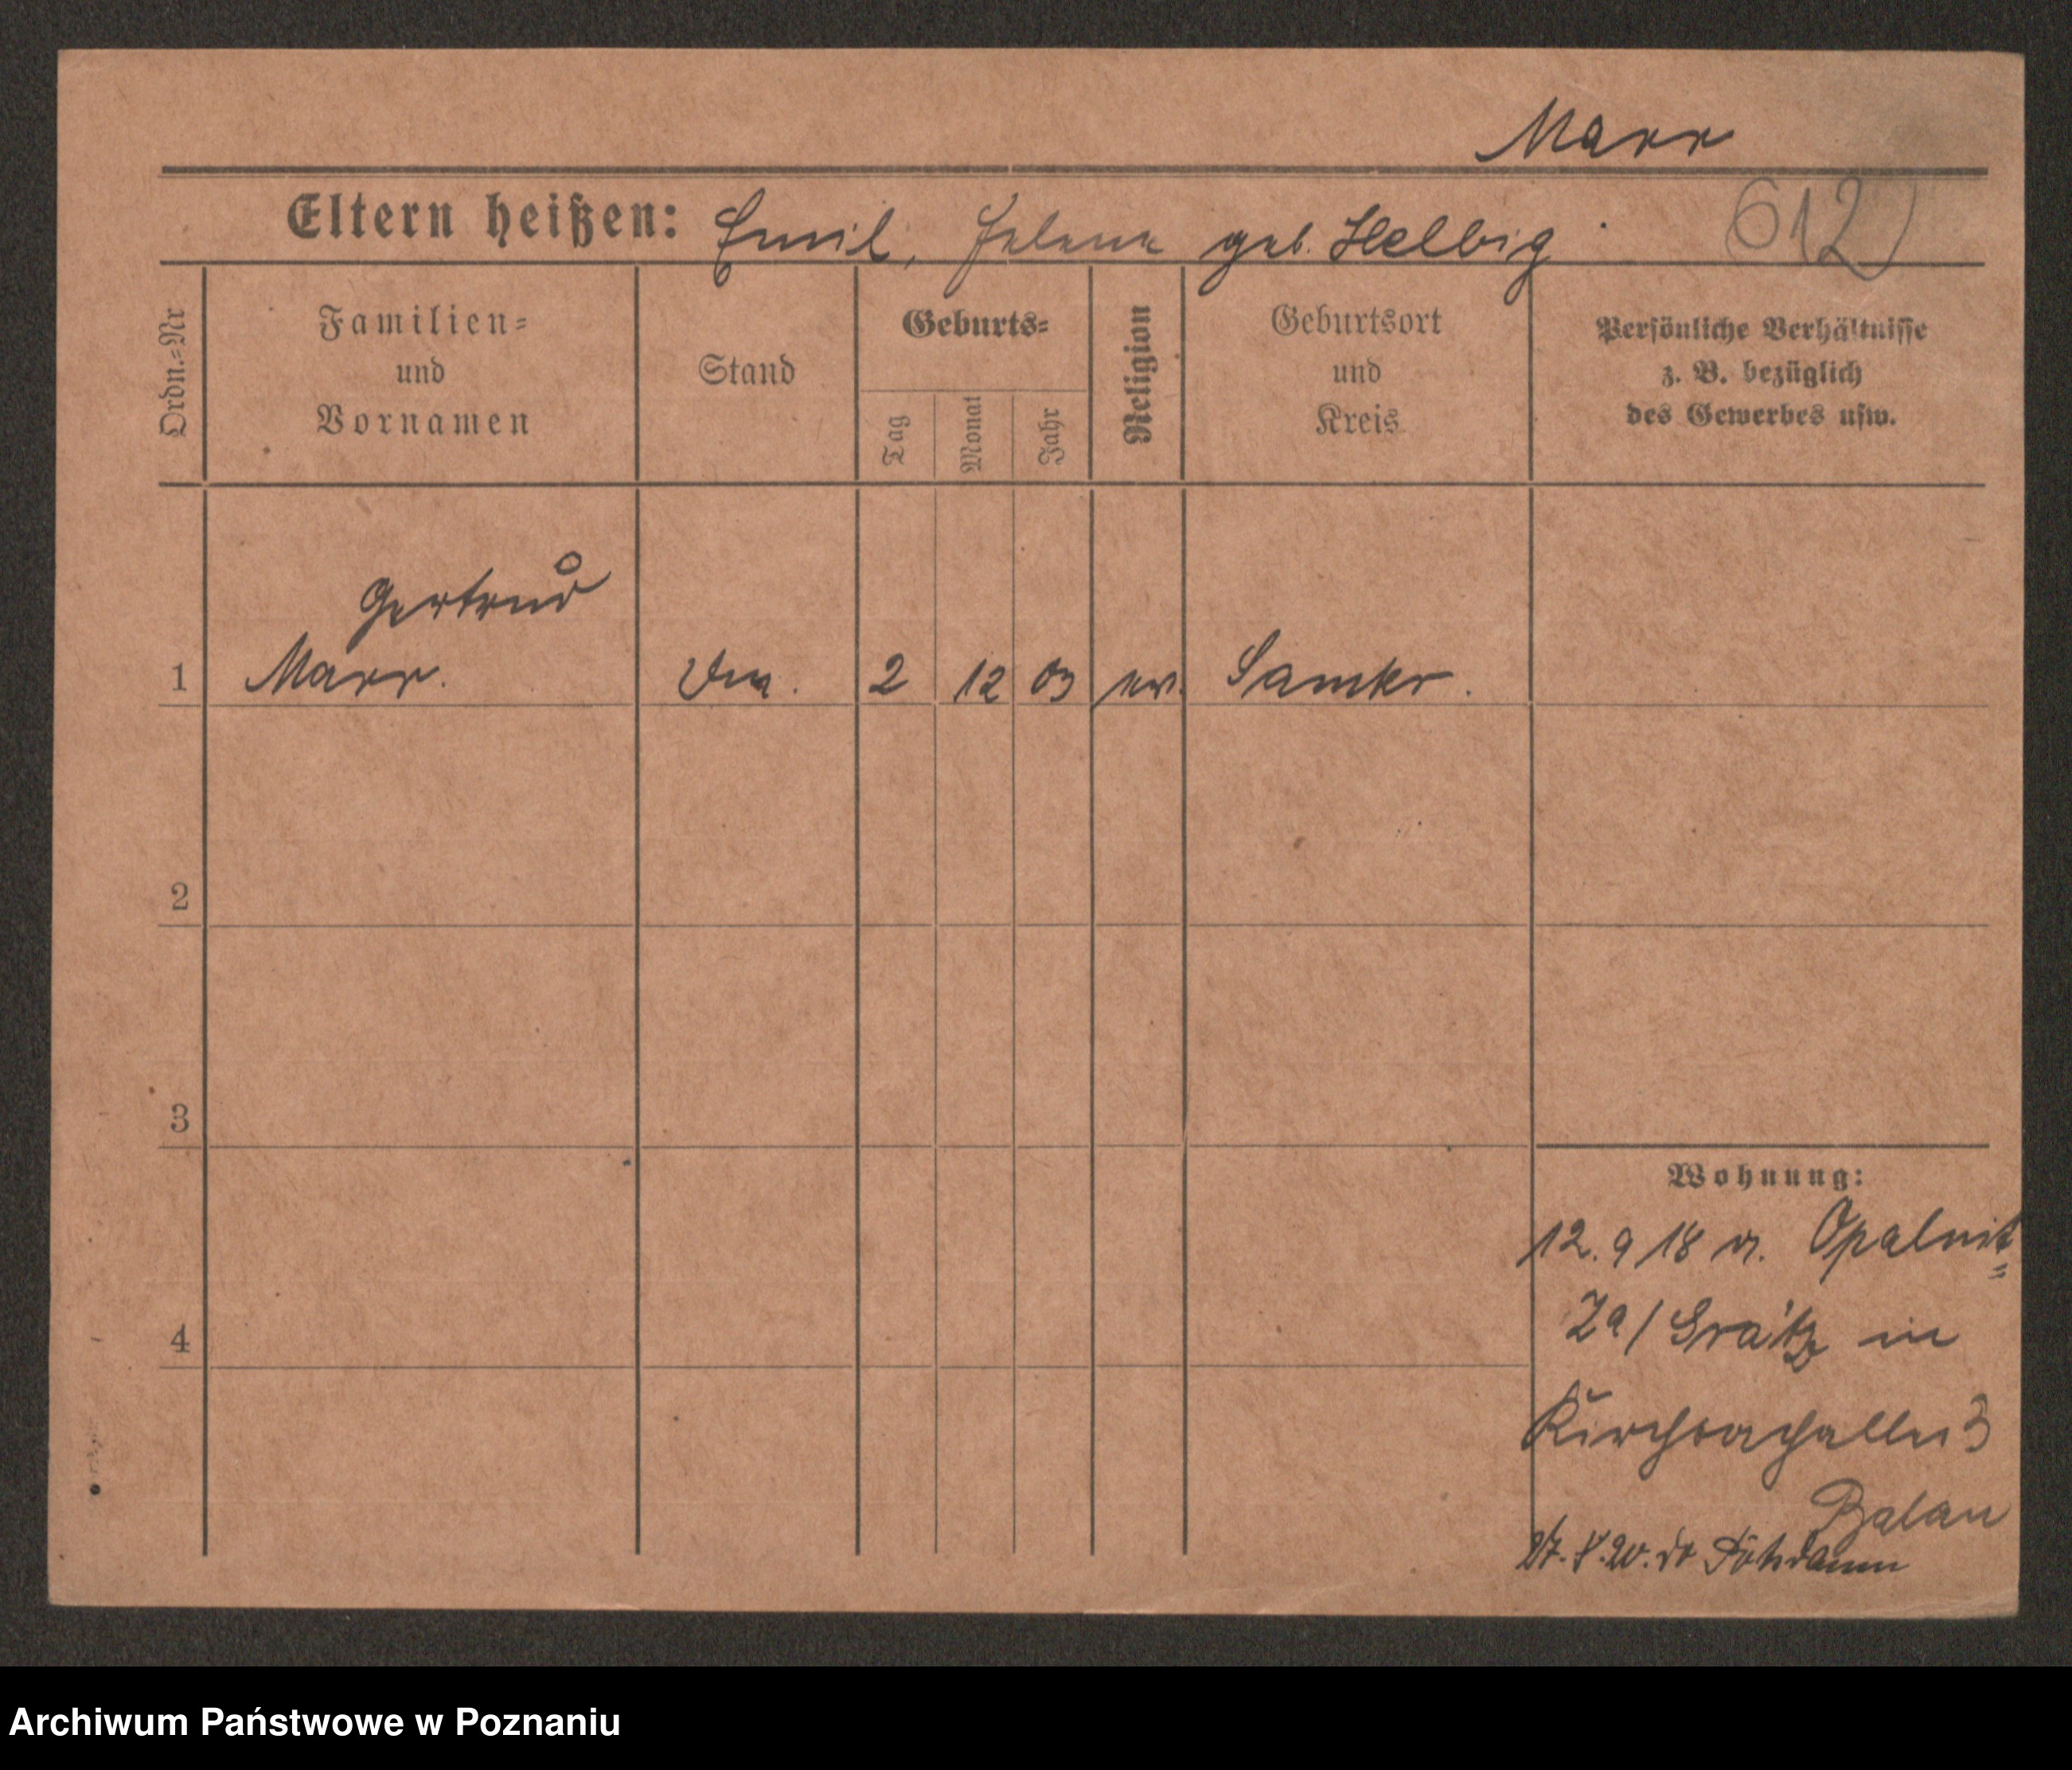 Marr
Eltern heißen: Emil, Helene geb. Helbig
612
Ordn.=Nr
Familien=
und
Vornamen
Stand
Geburts=
Tag
Monat
Jahr
Religion
Geburtsort
und
Kreis
Persönliche Verhältnisse
z. B. bezüglich
des Gewerbes usw.
Gertrud
1 Marr. 2 12 03 ev. Samter.
2
3
4
Wohnung:
12. 9 18 v. Opalnit=
za / Grätz in
3
27. 20. Potsdamm
Archiwum Państwowe w Poznaniu